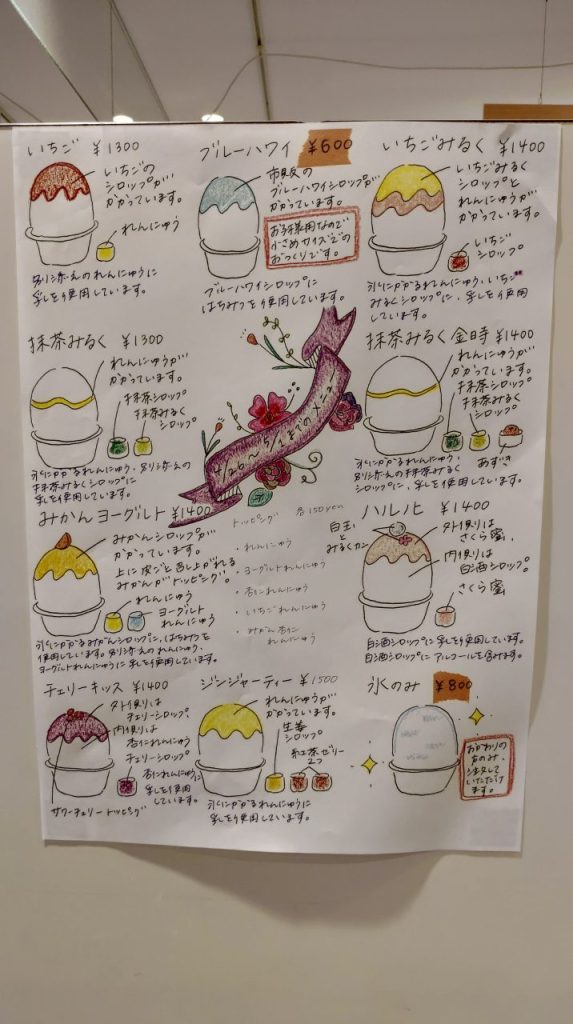 いちご ¥1300
いちごの
シロップが
かかっています。
れんにゅう
別添えのれんにゅうに
乳を使用しています。
ブルーハワイ ¥600
市販の
ブルーハワイシロップが
かかっています。
お子様用なので
小さめサイズでの
おつくりです。
ブルーハワイシロップに
はちみつを使用しています。
いちごみるく ¥1400
いちごみるく
シロップと
れんにゅうが
かかっています。
いちご
シロップ
氷にかかるれんにゅう、いちご
みるくシロップに、乳を使用
しています。
抹茶みるく ¥1300
れんにゅうが
かかっています。
抹茶シロップ
抹茶みるく
シロップ
氷にかかるれんにゅう、別添えの
抹茶みるくシロップに
乳を使用しています。
4/26〜5/1までのメニュー
抹茶みるく金時 ¥1400
れんにゅうが
かかっています。
抹茶シロップ
抹茶みるく
シロップ
あずき
氷にかかるれんにゅう、
別添えの抹茶みるく
シロップに、乳を使用しています。
みかんヨーグルト ¥1400
みかんシロップが
かかっています。
上に皮ごと召し上がれる
みかんがトッピング。
れんにゅう
ヨーグルト
れんにゅう
氷にかかるみかんシロップに、はちみつを
使用しています。別添えのれんにゅう、
ヨーグルトれんにゅうに乳を使用しています。
トッピング 各150yen
・れんにゅう
・ヨーグルトれんにゅう
・杏仁れんにゅう
・いちごれんにゅう
・みかん杏仁
れんにゅう
ハルノヒ ¥1400
白玉
と
みるくカン
外側りは
さくら蜜、
内側りは
白酒シロップ。
さくら蜜
白酒シロップに乳を使用しています。
白酒シロップにアルコールを含みます。
チェリーキッス ¥1400
外側りは
チェリーシロップ、
内側りは
杏仁れんにゅう
チェリーシロップ
杏仁れんにゅうに
乳を使用
しています。
サワーチェリートッピング
ジンジャーティー ¥1500
れんにゅうが
かかっています。
生姜
シロップ
紅茶ゼリー
2つ
氷にかかるれんにゅうに
乳を使用しています。
氷のみ ¥800
おかわりの
方のみ、
注文して
いただけ
ます。